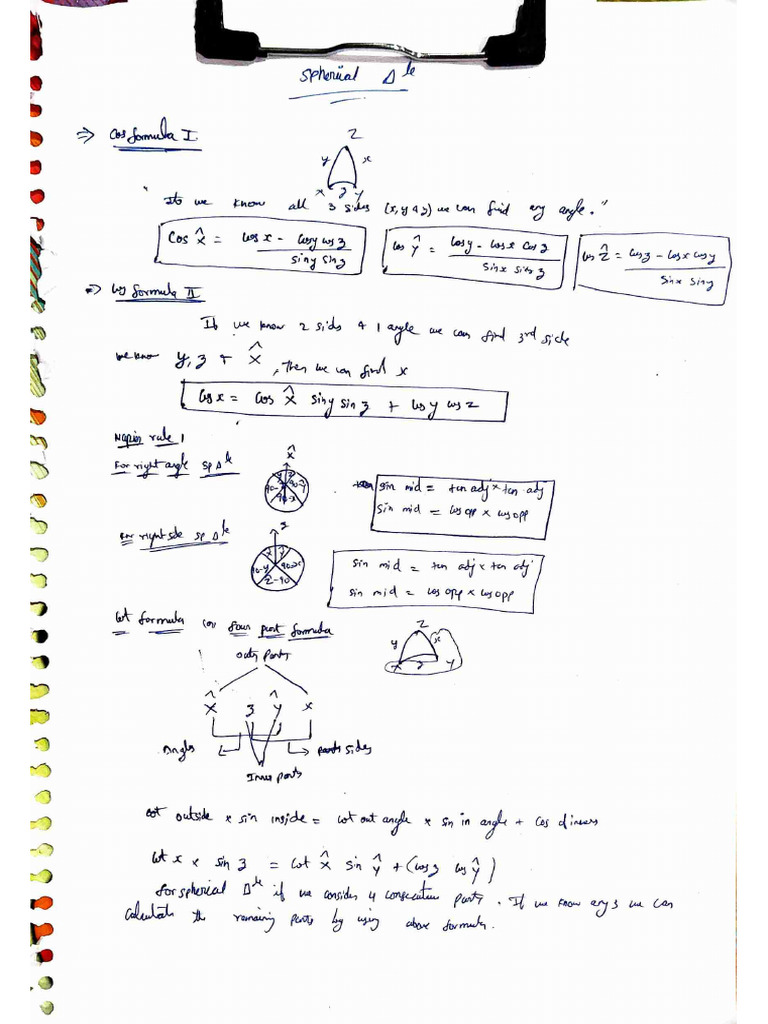 Spherical Δle
⇒ Cos formula I
Z
y x
x z y
"If we know all 3 sides (x, y & z) we can find any angle."
Cos X̂ = Cos x - Cos y cos z / sin y sin z
Cos Ŷ = Cos y - Cos x Cos z / Sin x sin z
Cos Ẑ = Cos z - Cos x Cos y / Sin x Sin y
⇒ Cos formula II
If we know 2 sids & 1 angle we can find 3rd side
We know y, z & X̂, Then we can find x
Cos x = Cos X̂ sin y sin z + Cos y cos z
Napier rule 1
For right angle sp Δle
X̂
sin mid = tan adj x tan adj
sin mid = cos opp x cos opp
For right side sp Δle
z
X̂ Ŷ
90-y 90-x
Z-90
sin mid = tan adj x tan adj
sin mid = cos opp x cos opp
Cot formula (or) four part formula
Z
y x
X z Y
Outer Parts
X̂ z Ŷ x
Angles Parts sides
Inner parts
cot outside x sin inside = cot out angle x sin in angle + cos d inners
Cot x x sin z = Cot X̂ sin Ŷ + (cos z cos Ŷ)
for spherical Δle if we consider 4 consecutive parts. If we know any 3 we can
calculate the remaining parts by using above formula.